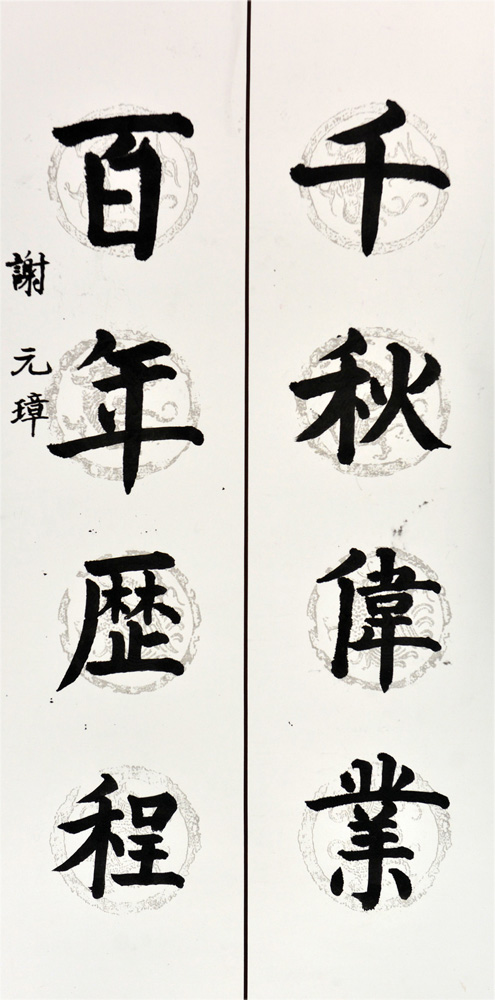 千秋偉業
百年歴程
謝元璋